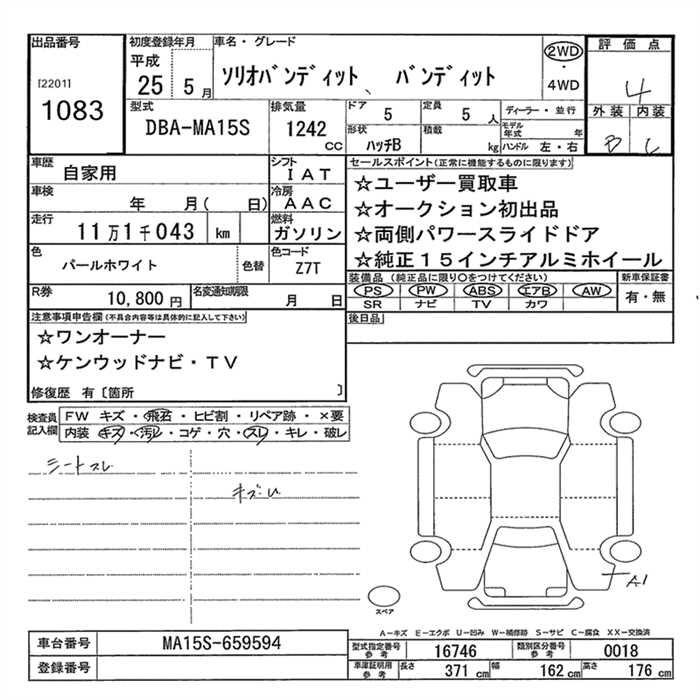 出品番号
[2201]
1083
初度登録年月
平成
25 5月
車名・グレード
ソリオバンディット、バンディット
2WD
・
4WD
評価点
4
外装 内装
B C
型式
DBA-MA15S
排気量
1242
cc
ドア
5
定員
5
人
形状
ハッチB
積載
kg
ディーラー・並行
モデル年式
年
ハンドル 左・右
車歴
自家用
シフト
IAT
車検
年 月( 日)
冷房
AAC
走行
11万1千043 km
燃料
ガソリン
色
パールホワイト
色替
色コード
Z7T
R券
10,800円
名変通知期限
月 日
セールスポイント(正常に機能するものに限ります)
☆ユーザー買取車
☆オークション初出品
☆両側パワースライドドア
☆純正15インチアルミホイール
装備品 (純正品に限り○をつけてください)
PS PW ABS エアB AW
SR ナビ TV カワ
新車保証書
有・無
後日品
注意事項申告欄(不具合内容等は具体的に記入して下さい)
☆ワンオーナー
☆ケンウッドナビ・TV
修復歴 有〔箇所 〕
検査員記入欄
FW キズ・飛石・ヒビ割・リペア跡・×要
内装 キズ・汚レ・コゲ・穴・スレ・キレ・破レ
シートスレ
キズU
A1
スペア
A-キズ E-エクボ U-凹み W-補修跡 S-サビ C-腐食 XX-交換済
車台番号
MA15S-659594
登録番号
型式指定番号
参考
16746
類別区分番号
参考
0018
車庫証明用
参考
長さ 371cm
幅 162cm
高さ 176cm